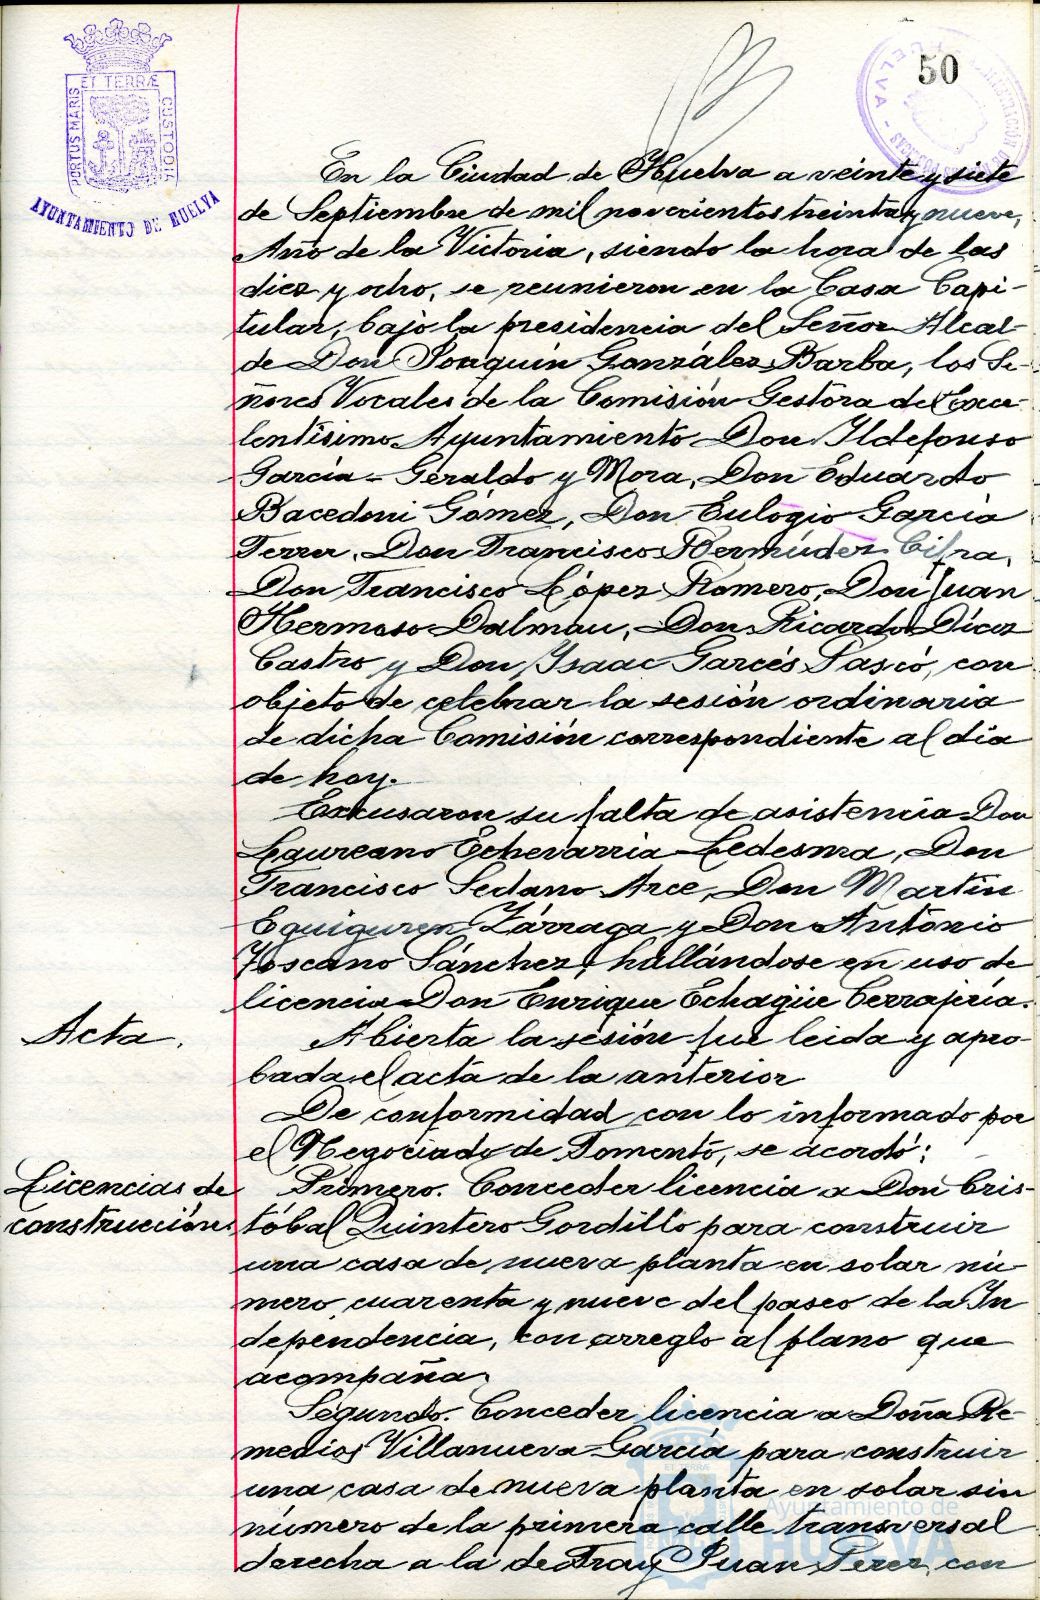 PORTUS MARIS ET TERRÆ CUSTODIA
AYUNTAMIENTO DE HUELVA
50
HUELVA
En la Ciudad de Huelva a veinte y siete
de Septiembre de mil novecientos treinta y nueve,
Año de la Victoria, siendo la hora de las
diez y ocho, se reunieron en la Casa Capi-
tular, bajo la presidencia del Señor Alcal-
de Don Joaquín González Barba, los Se-
ñores Vocales de la Comisión Gestora del Exce-
lentísimo Ayuntamiento Don Ildefonso
García-Geraldo y Mora, Don Eduardo
Bacedoni Gómez, Don Eulogio García
Ferrer, Don Francisco Bermúdez Cifra,
Don Francisco López Romero, Don Juan
Hermoso Dalmau, Don Ricardo Díez
Castro y Don Isaac Garcés Pasció, con
objeto de celebrar la sesión ordinaria
de dicha Comisión correspondiente al día
de hoy.
Excusaron su falta de asistencia Don
Laureano Echevarria Ledesma, Don
Francisco Sedano Arce, Don Martín
Eguiguren Zárraga y Don Antonio
Toscano Sánchez, hallándose en uso de
licencia Don Enrique Echagüe Cerrajería.
Acta.
Abierta la sesión fué leida y apro-
bada el acta de la anterior
De conformidad con lo informado por
el Negociado de Fomento, se acordó:
Licencias de
construcción.
Primero. Conceder licencia a Don Cris-
tóbal Quintero Gordillo para construir
una casa de nueva planta en solar nú-
mero cuarenta y nueve del paseo de la In
dependencia, con arreglo al plano que
acompaña.
Segundo. Conceder licencia a Doña Re-
medios Villanueva García para construir
una casa de nueva planta en solar sin
número de la primera calle transversal
derecha a la de Fray Juan Perez, con
Ayuntamiento de
HUELVA